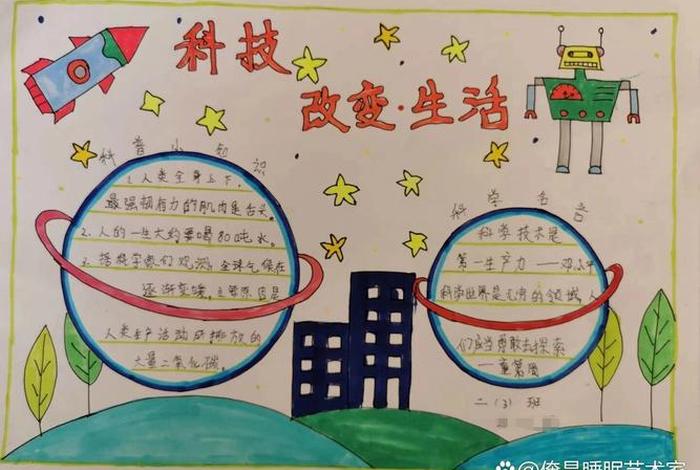 科技
改变·生活
科普小知识
1.人类全身上下，
最强韧有力的肌肉是舌头。
2.人的一生大约要喝80吨水。
3.据科学家们观测,全球气候在
逐渐变暖,主要原因是
人类生产活动所排放的
大量二氧化碳。
科学名言
科学技术是
第一生产力——邓小平
科学世界是无穷的领域,人
们应当勇敢去探索
——童第周
二(3)班
睡眠艺术家